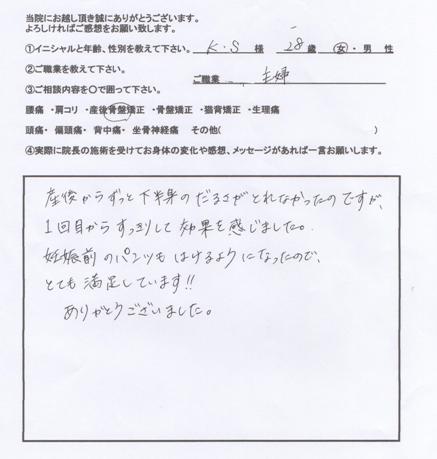 当院にお越し頂き誠にありがとうございます。
よろしければご感想をお願い致します。
①イニシャルと年齢、性別を教えて下さい。 K・S 様 28歳 女・男 性
②ご職業を教えて下さい。 ご職業 主婦
③ご相談内容を○で囲って下さい。
腰痛 ・肩コリ ・産後骨盤矯正 ・骨盤矯正 ・猫背矯正 ・生理痛
頭痛・ 偏頭痛・ 背中痛・ 坐骨神経痛 その他( )
④実際に院長の施術を受けてお身体の変化や感想、メッセージがあれば一言お願いします。
産後からずっと下半身のだるさがとれなかったのですが、
1回目からすっきりして効果を感じました。
妊娠前のパンツもはけるようになったので、
とても満足しています!!
ありがとうございました。